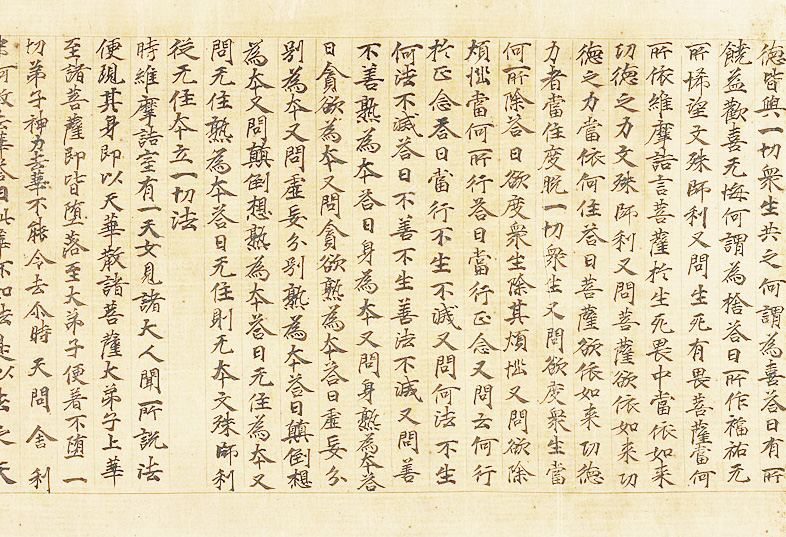 德皆與一切眾生共之何謂為喜答曰有所
饒益歡喜无悔何謂為捨答曰所作福祐无
所悕望文殊師利又問生死有畏菩薩當何
所依維摩詰言菩薩於生死畏中當依如来
功德之力文殊師利又問菩薩欲依如来功
德之力當依何住答曰菩薩欲依如来功德
力者當住度脫一切眾生又問欲度眾生當
何所除答曰欲度眾生除其煩惱又問欲除
煩惱當何所行答曰當行正念又問云何行
於正念答曰當行不生不滅又問何法不生
何法不滅答曰不善不生善法不滅又問善
不善熟為夲答曰身為夲又問身熟為夲答
曰貪欲為夲又問貪欲熟為夲答曰虛妄分
別為夲又問虛妄分別熟為夲答曰顛倒想
為夲又問顛倒想熟為夲答曰无住為夲又
問无住熟為夲答曰无住則无夲文殊師利
從无住夲立一切法
時維摩詰室有一天女見諸大人聞所說法
便現其身即以天華散諸菩薩大弟子上華
至諸菩薩即皆墮落至大弟子便著不墮一
切弟子神力去華不能令去尒時天問舍利
何故去華答曰此華不如法是以去之天